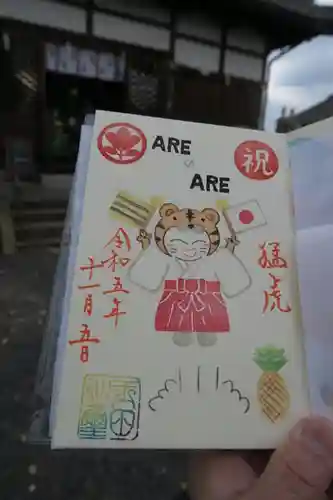 ARE
ARE
祝
猛虎
令和五年
十一月五日